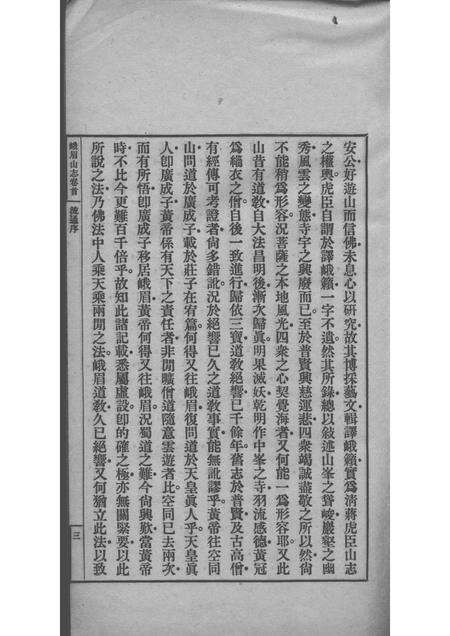 安公好遊山而信佛未息心以研究故其博採藝文輯譯峨籟實爲清蔣虎臣山志
之權輿虎臣自謂於譯峨籟一字不遺然其所錄總以敘述山峯之聳峻巖壑之幽
秀風雲之變態寺宇之興廢而已至於普賢興慈運悲四衆竭誠盡敬之所以然尙
不能稍爲形容況菩薩之本地風光四衆之心契覺海者又何能一爲形容耶又此
山昔有道敎自大法昌明後漸次歸眞明果滅妖乾明作中峯之寺羽流感德黃冠
爲緇衣之僧自後一致進行歸依三寶道敎絕響已千餘年舊志於普賢及古高僧
有經傳可考證者尙多錯訛況於絕響已久之道敎事實能無訛謬乎黃帝往空同
山問道於廣成子載於莊子在宥篇何得又往峨眉復問道於天皇眞人乎天皇眞
人卽廣成子黃帝係有天下之責任者非閒曠僧道隨意雲遊者比空同已去兩次
而有所悟卽廣成子移居峨眉黃帝何得又往峨眉況蜀道之難今尙興歎當黃帝
時不比今更難百千倍乎故知此諸記載悉屬虛設卽的確之極亦無關緊要以此
所說之法乃佛法中人乘天乘兩間之法峨眉道敎久已絕響又何猶立此法以致
峨眉山志卷首
流通序
三